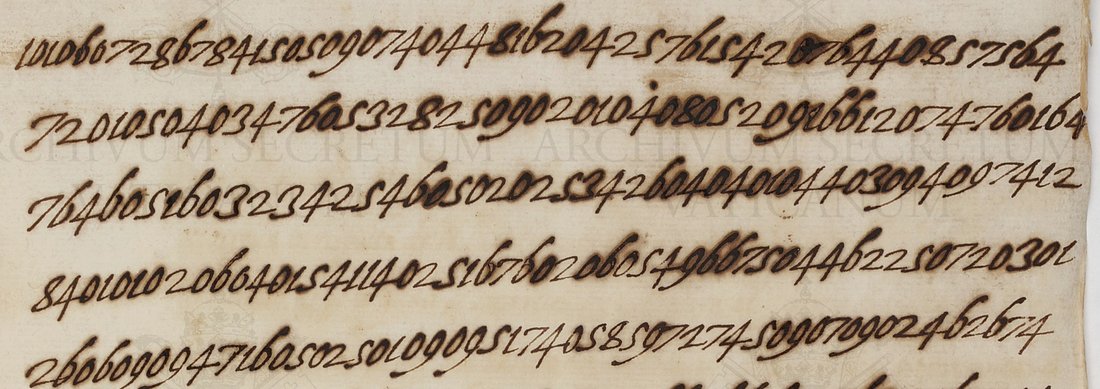 101060728678415050907404481620425761542076440857564
7201050403476053282509020104080520916612074760164
764605160323425460502025342604040104403094097412
8401010206040154114025167602060549667504462250720301
260609094716050250109095174058597274509070902462674